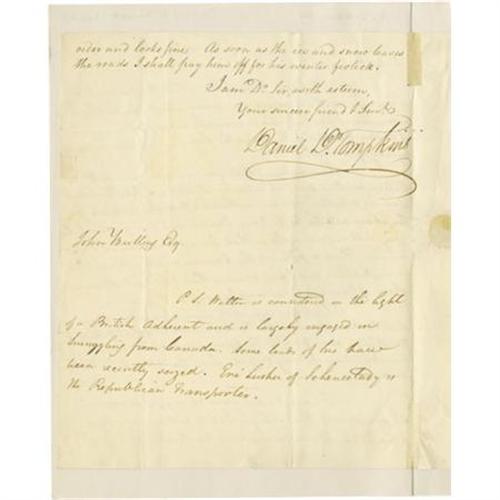 order and looks fine. As soon as the ice and snow leaves
the roads I shall pay him off for his winter frolick.
I am Dr Sir, with esteem,
Your sincere friend & Servt
Daniel D. Tompkins
John Bullus Esq
P. S. Walton is considered in the light
of a British Adherent and is largely engaged in
smuggling from Canada. Some loads of his have
been recently seized. Eri Lusher of Schenectady is
the Republican transporter.